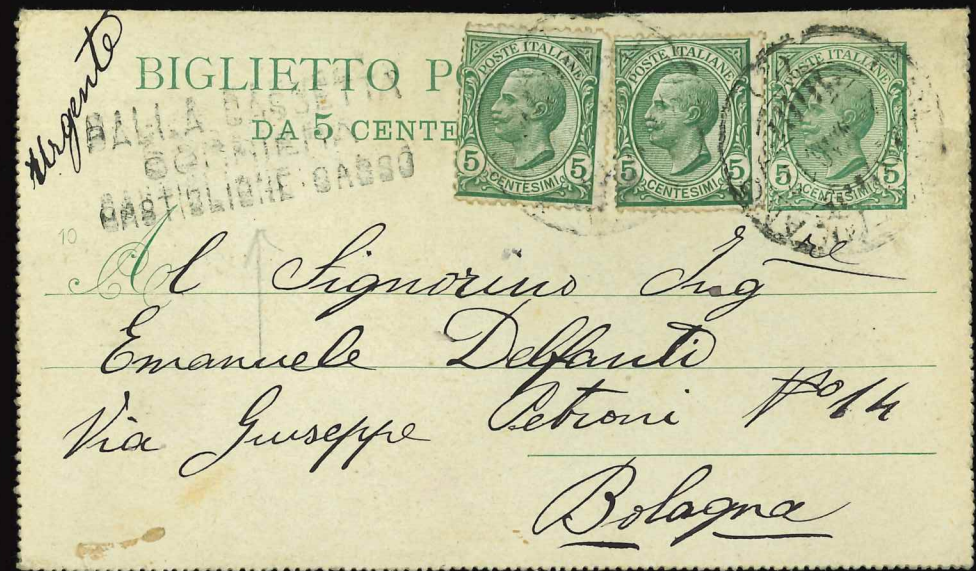 Urgente
BIGLIETTO P
DA 5 CENTE
DALLA CASSETTA
CORRIERA
CASTIGLIONE GASSÓ
POSTE ITALIANE
5 CENTESIMI 5
POSTE ITALIANE
5 CENTESIMI 5
POSTE ITALIANE
5 CENTESIMI 5
10
Al Signorino Ing^e
Emanuele Delfanti
Via Giuseppe Petroni No 14
Bologna